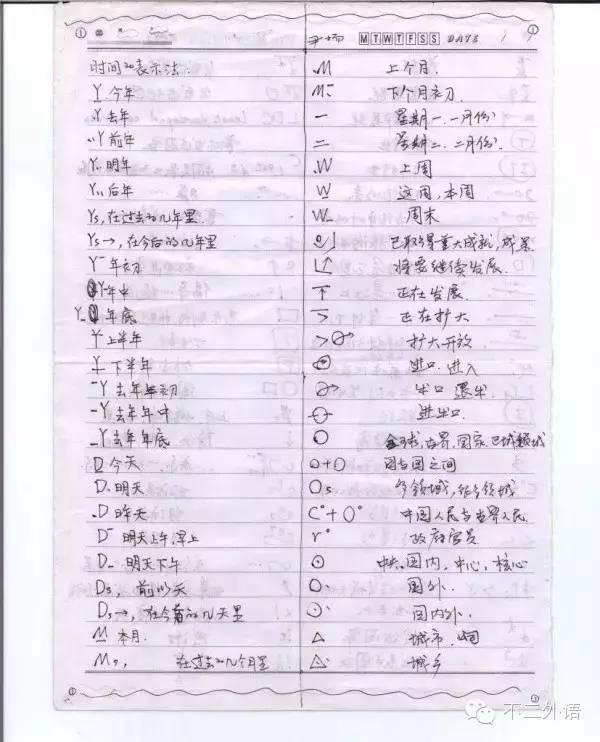 M T W T F S S DATE
时间的表示法:
Y 今年
.Y 去年
..Y 前年
Y. 明年
Y.. 后年
Ys, 在过去的几年里
Ys→, 在今后的几年里
Y¯ 年初
Y 年中
Y_ 年底
Y 上半年
Y 下半年
¯Y 去年年初
-Y 去年年中
_Y 去年年底
D 今天
D. 明天
.D 昨天
D¯ 明天上午,早上
D_ 明天下午
Ds, 前的天
Ds→, 在今后的几天里
M 本月.
M, 在过去的几个月里
.M 上个月.
M.¯ 下个月初.
一 星期一.一月份
二 星期二.二月份
.W 上周
W 这周,本周
W_ 周末
已取得重大成就,成果
将要继续发展.
正在发展.
> 正在扩大
扩大开放
进口.进入
出口 退出
进出口.
○ 全球,世界,国家.区域领域
○+○ 国与国之间
○s 各领域,
C°+○° 中国人民与世界人民
r° 政府官员
⊙ 中央,国内,中心,核心
○. 国外.
⊙. 国内外.
△ 城市.
△. 城乡
不二外语